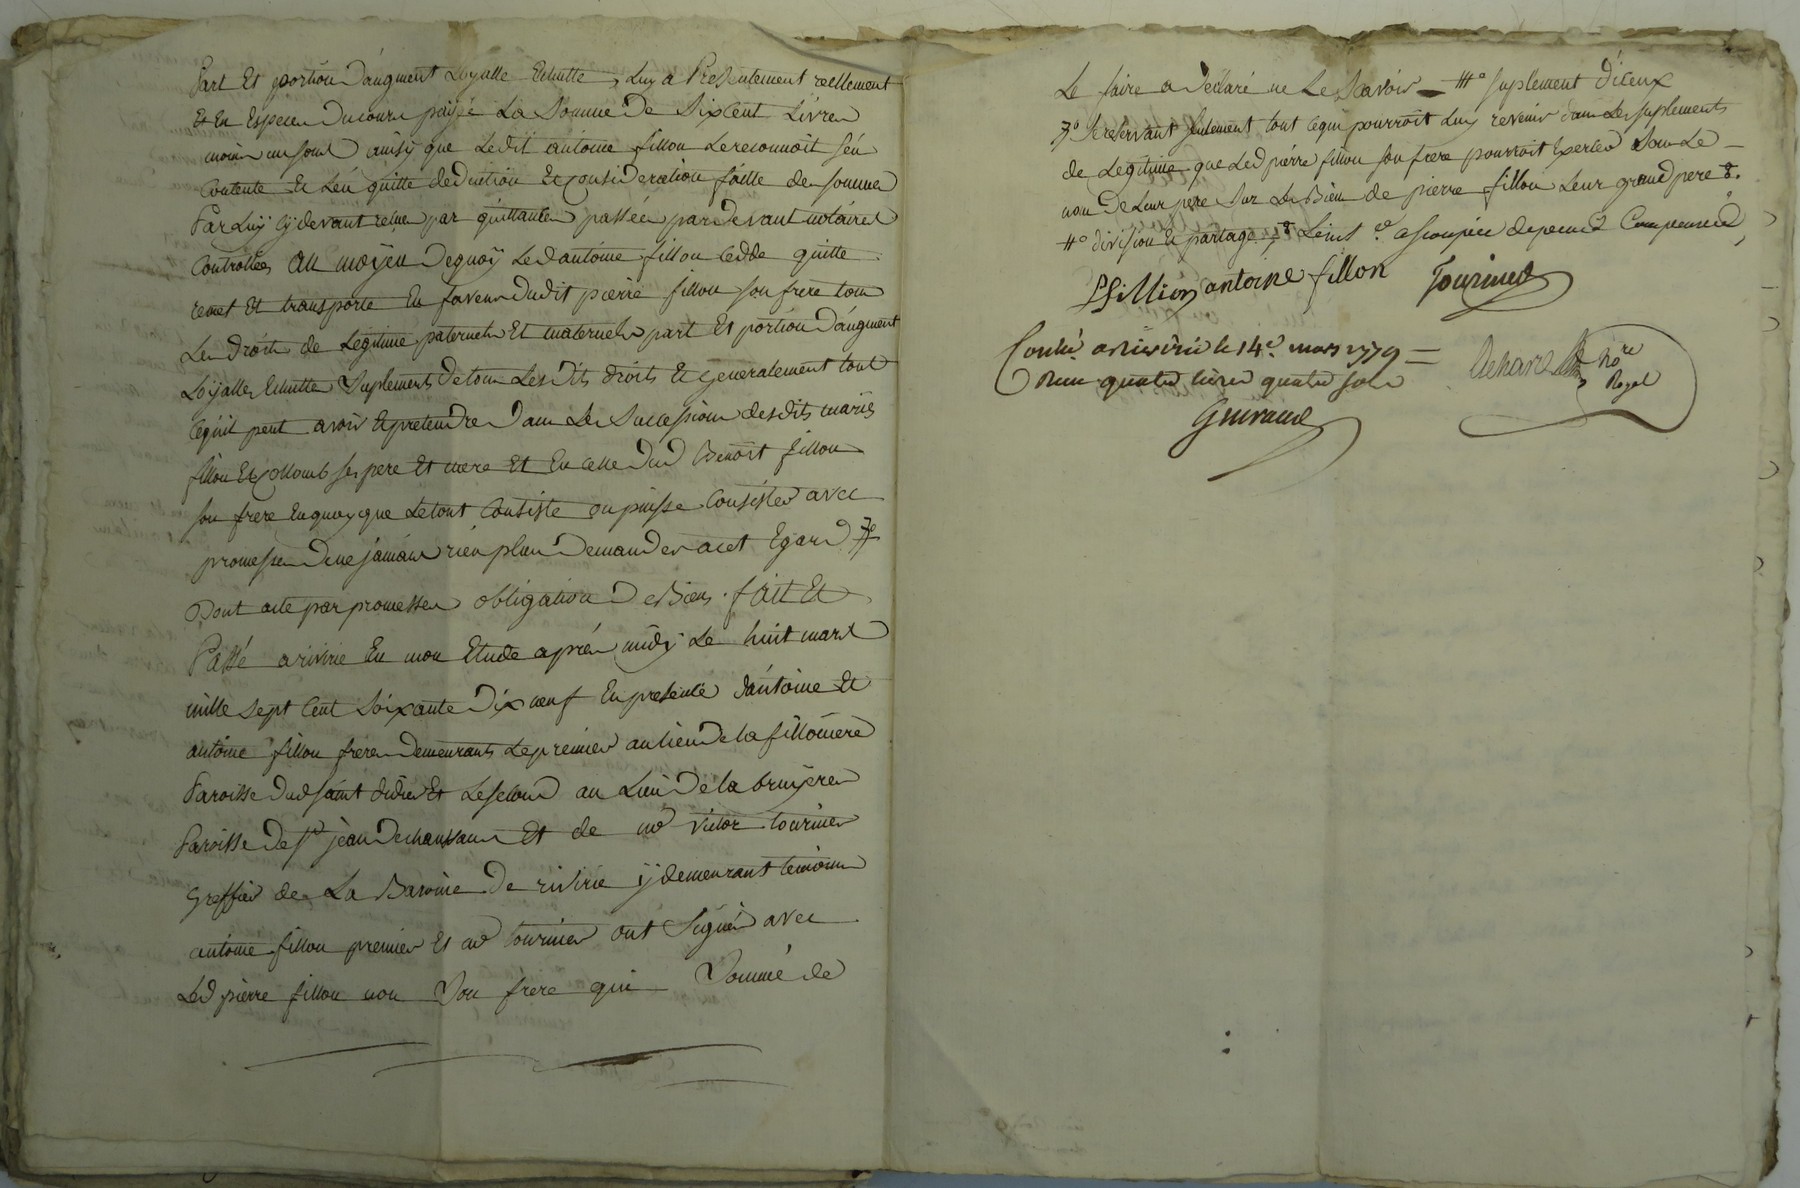 Part Et portion d'augment Loyalle Echutte, Luy a Presentement reellement
Et En Especes du cours payé La Somme De Six cent Livres
moins un sout ainsy que Ledit antoine fillon Le reconnoit S'en
Contente Et L'en quitte deduction Et consideration faitte des sommes
Par Luy cy devant reçues par quittances passées par devant notaires
Controllées au moyen Dequoy Led antoine fillon Cedde quitte
remet Et transporte En faveur dudit pierre fillon son frere tous
Les Droits de Legitime paternels Et maternels part Et portion D'augment
Loyalle Echutte Suplements De tous Lesdits droits Et generalement tout
Cequil peut avoir Et pretendre Dans Les Successions desdits mariés
fillon Et Collomb ses pere Et mere Et En celle dud Benoit fillon
son frere En quoy que Le tout Consiste ou puisse Consister avec
promesse De ne jamais rien plus Demander acet Egard
Dont acte par promesses obligation De Biens. fait Et
Passé a riverie En mon Etude après midy Le huit mars
mille sept Cent Soixante Dix neuf En presence d'antoine Et
antoine fillon freres Demeurants Le premier au lieu De la fillonière
Paroisse dud saint didier Et Le second au Lieu De la bruyere
Paroisse De st jean De chaussan Et de me victor tournier
Greffier de La Baronie De riverie y demeurant temoins
antoine fillon premier Et me tournier ont Signés avec
Led pierre fillon non Son frere qui Sommé de
Le faire a Déclaré ne Le Scavoir suplement d'iceux
Se reservant seulement tout cequi pourroit Luy revenir dans Les suplements
de Legitime que Led pierre fillon son frere pourroit Exercer Sous Le
nom De Leur pere Sur Les Biens de pierre fillon Leur grand pere
division Et partage depens Compensés
Pfillion antoine fillon Tournier
Conllé a Riverie le 14e. mars 1779 =
Reçu quatre livres quatre sols
Dechard nore
Royal